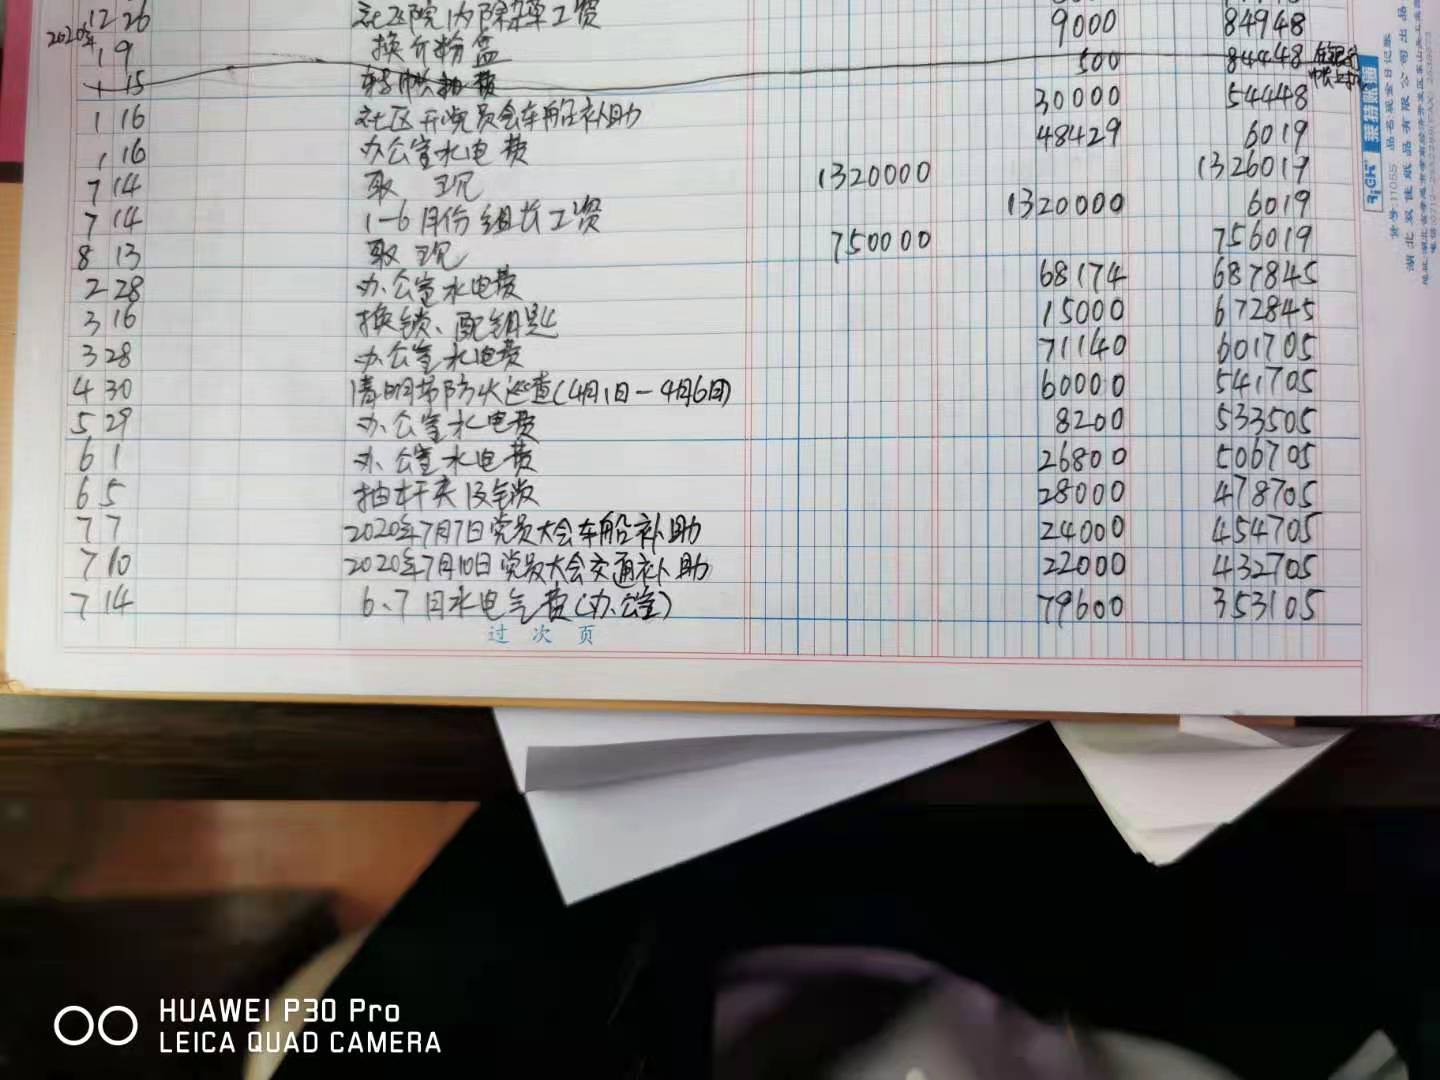 12 26 社区院内除杂草工资 9000 84948
2020年
1 9 换介粉盒 500 84448
1 15
1 16 社区开党员会车船补助 30000 54448
1 16 办公室水电费 48429 6019
7 14 取现 1320000 1326019
7 14 1-6月份组长工资 1320000 6019
8 13 取现 750000 756019
2 28 办公室水电费 68174 687845
3 16 换锁、配钥匙 15000 672845
3 28 办公室水电费 71140 601705
4 30 清明节防火巡查(4月1日-4月6日) 60000 541705
5 29 办公室水电费 8200 533505
6 1 办公室水电费 26800 506705
6 5 抽杆夹及锁 28000 478705
7 7 2020年7月7日党员大会车船补助 24000 454705
7 10 2020年7月10日党员大会交通补助 22000 432705
7 14 6、7月水电气费(办公室) 79600 353105
过次页
莱特斯通
RiGH
货号:11055 品名:现金日记账
湖北双佳纸品有限公司出品
HUAWEI P30 Pro
LEICA QUAD CAMERA